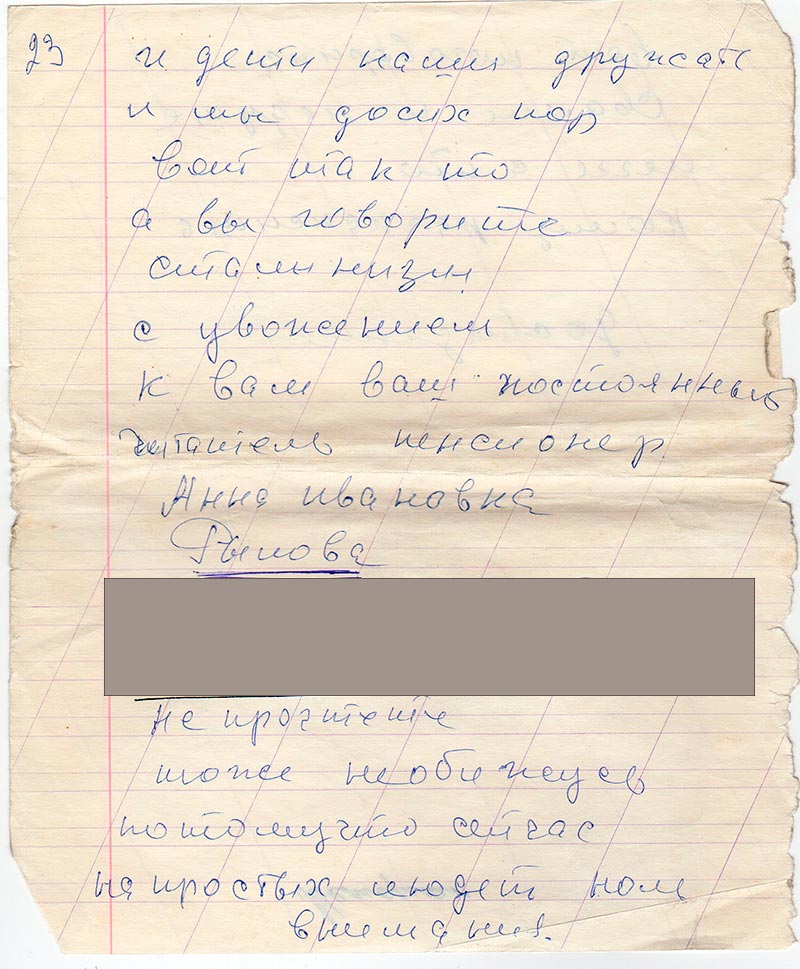 23
и дети наши дружат
и мы досих пор
вот так то
а вы говорите
сталинизм
с уважением
к вам ваш постоянный
читатель пенсионер
Анна ивановна
не прочтете
тоже необижусь
потомучто сейчас
на простых людей ноль
внимания.